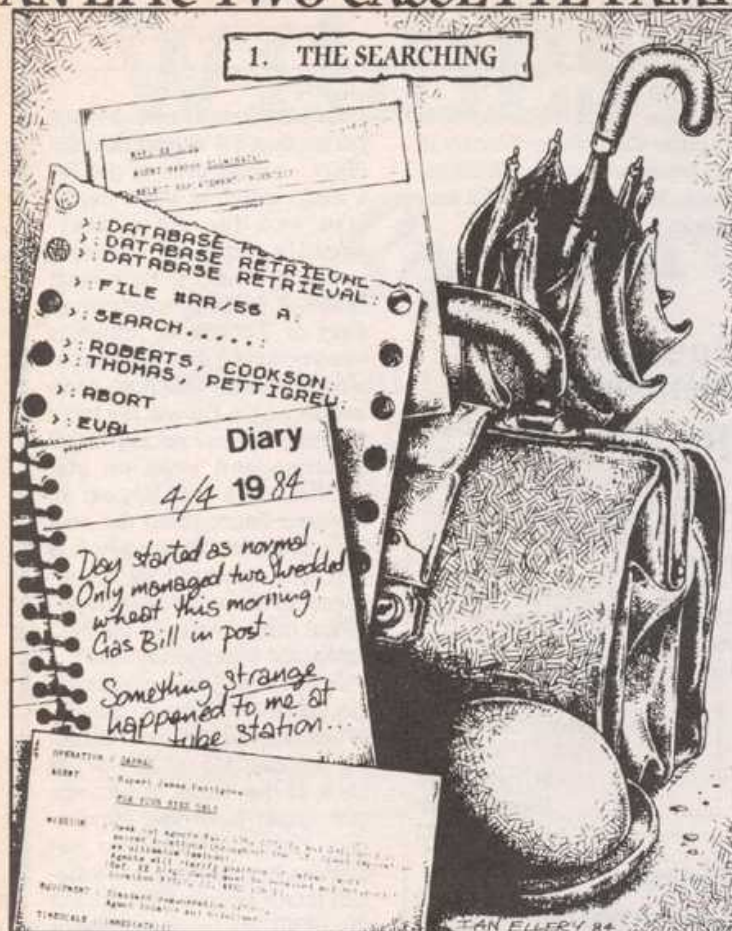 AN EPIC TWO CASSETTE FAMI
1. THE SEARCHING
AGENT
>:DATABASE
>:DATABASE RETRIEVAL
>:DATABASE RETRIEVAL:
>:FILE #RR/56 A:
>:SEARCH.....:
>:ROBERTS, COOKSON:
>:THOMAS, PETTIGREW:
>:ABORT
>:EVAL
Diary
4/4 1984
Day started as normal.
Only managed two shredded
wheat this morning!
Gas Bill in post.
Something strange
happened to me at
tube station...
OPERATION :
AGENT : Rupert James Pettigrew
FOR YOUR EYES ONLY
MISSION :
EQUIPMENT : Standard
TIMESCALE : IMMEDIATE
IAN ELLERY 84